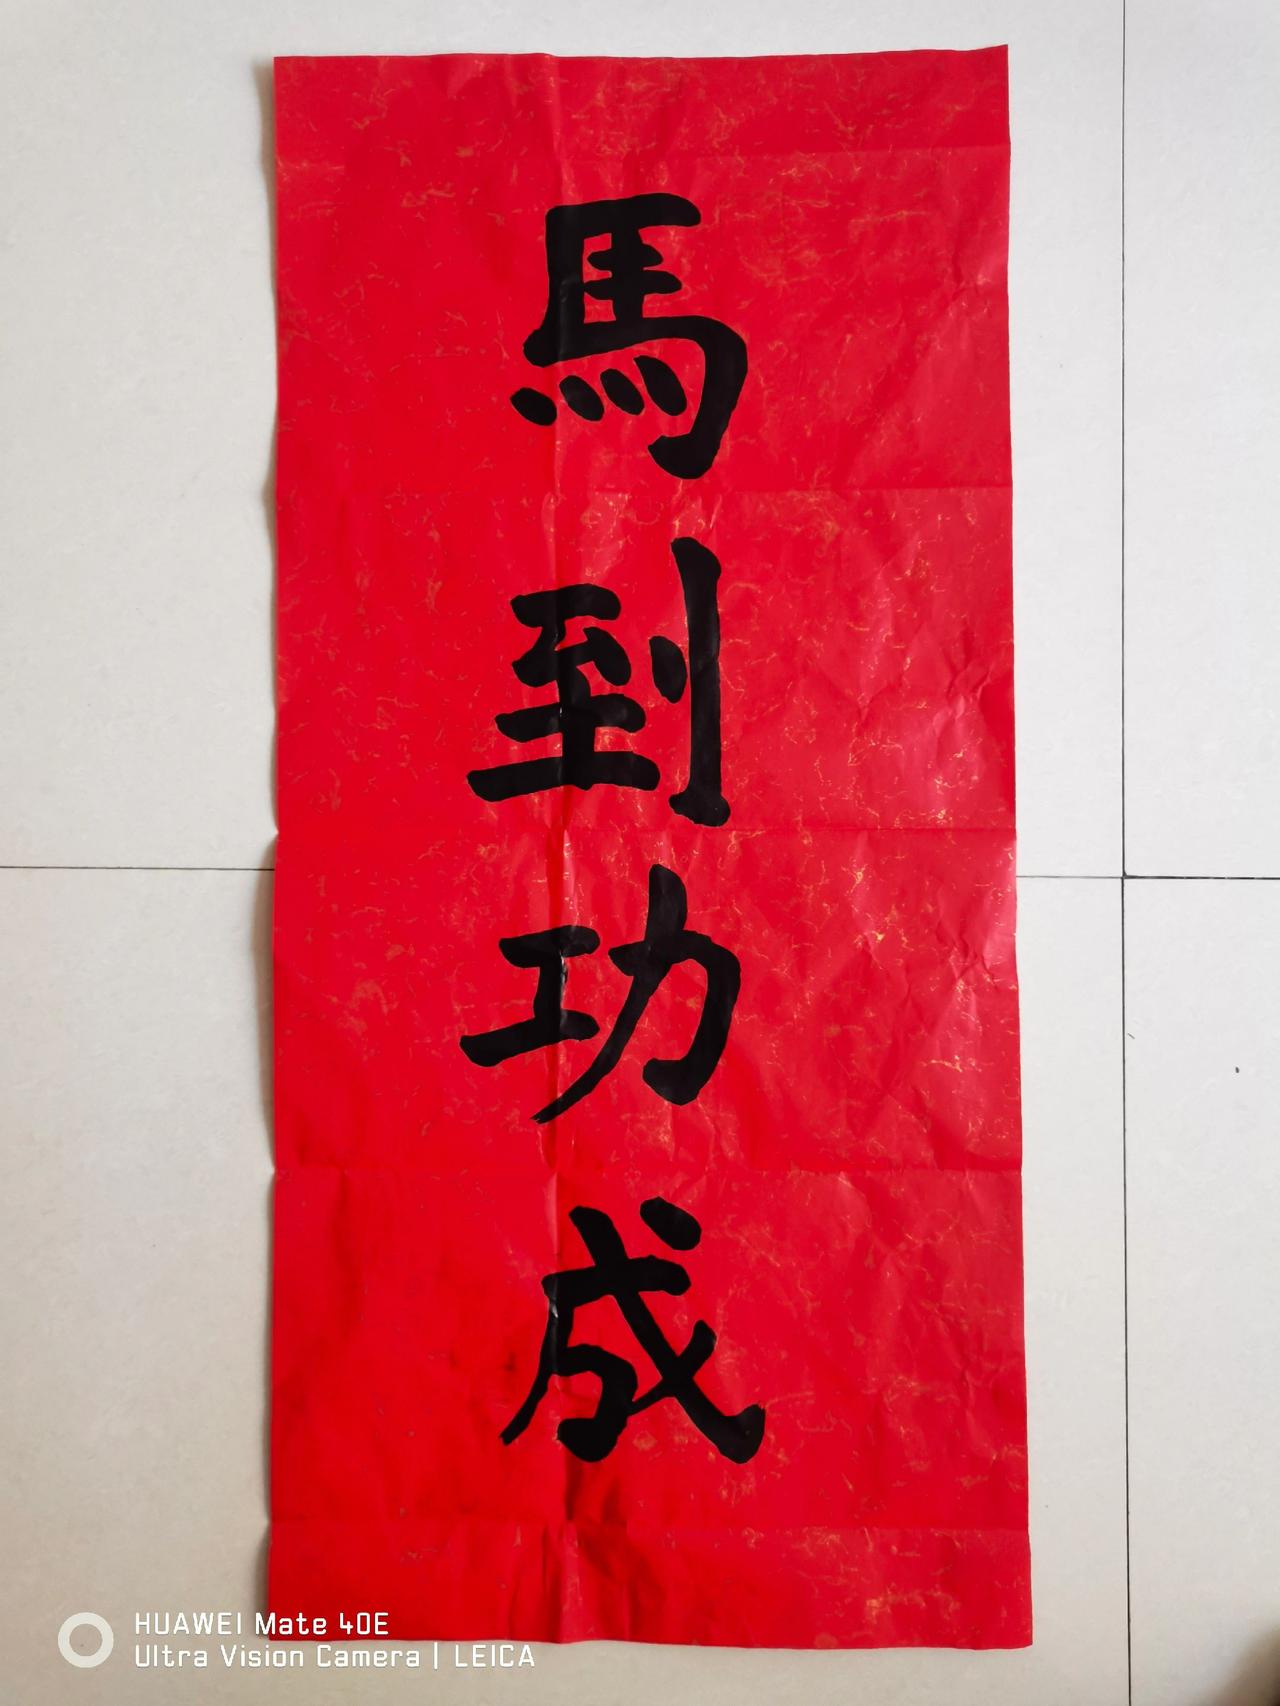 馬到功成
HUAWEI Mate 40E
Ultra Vision Camera | LEICA